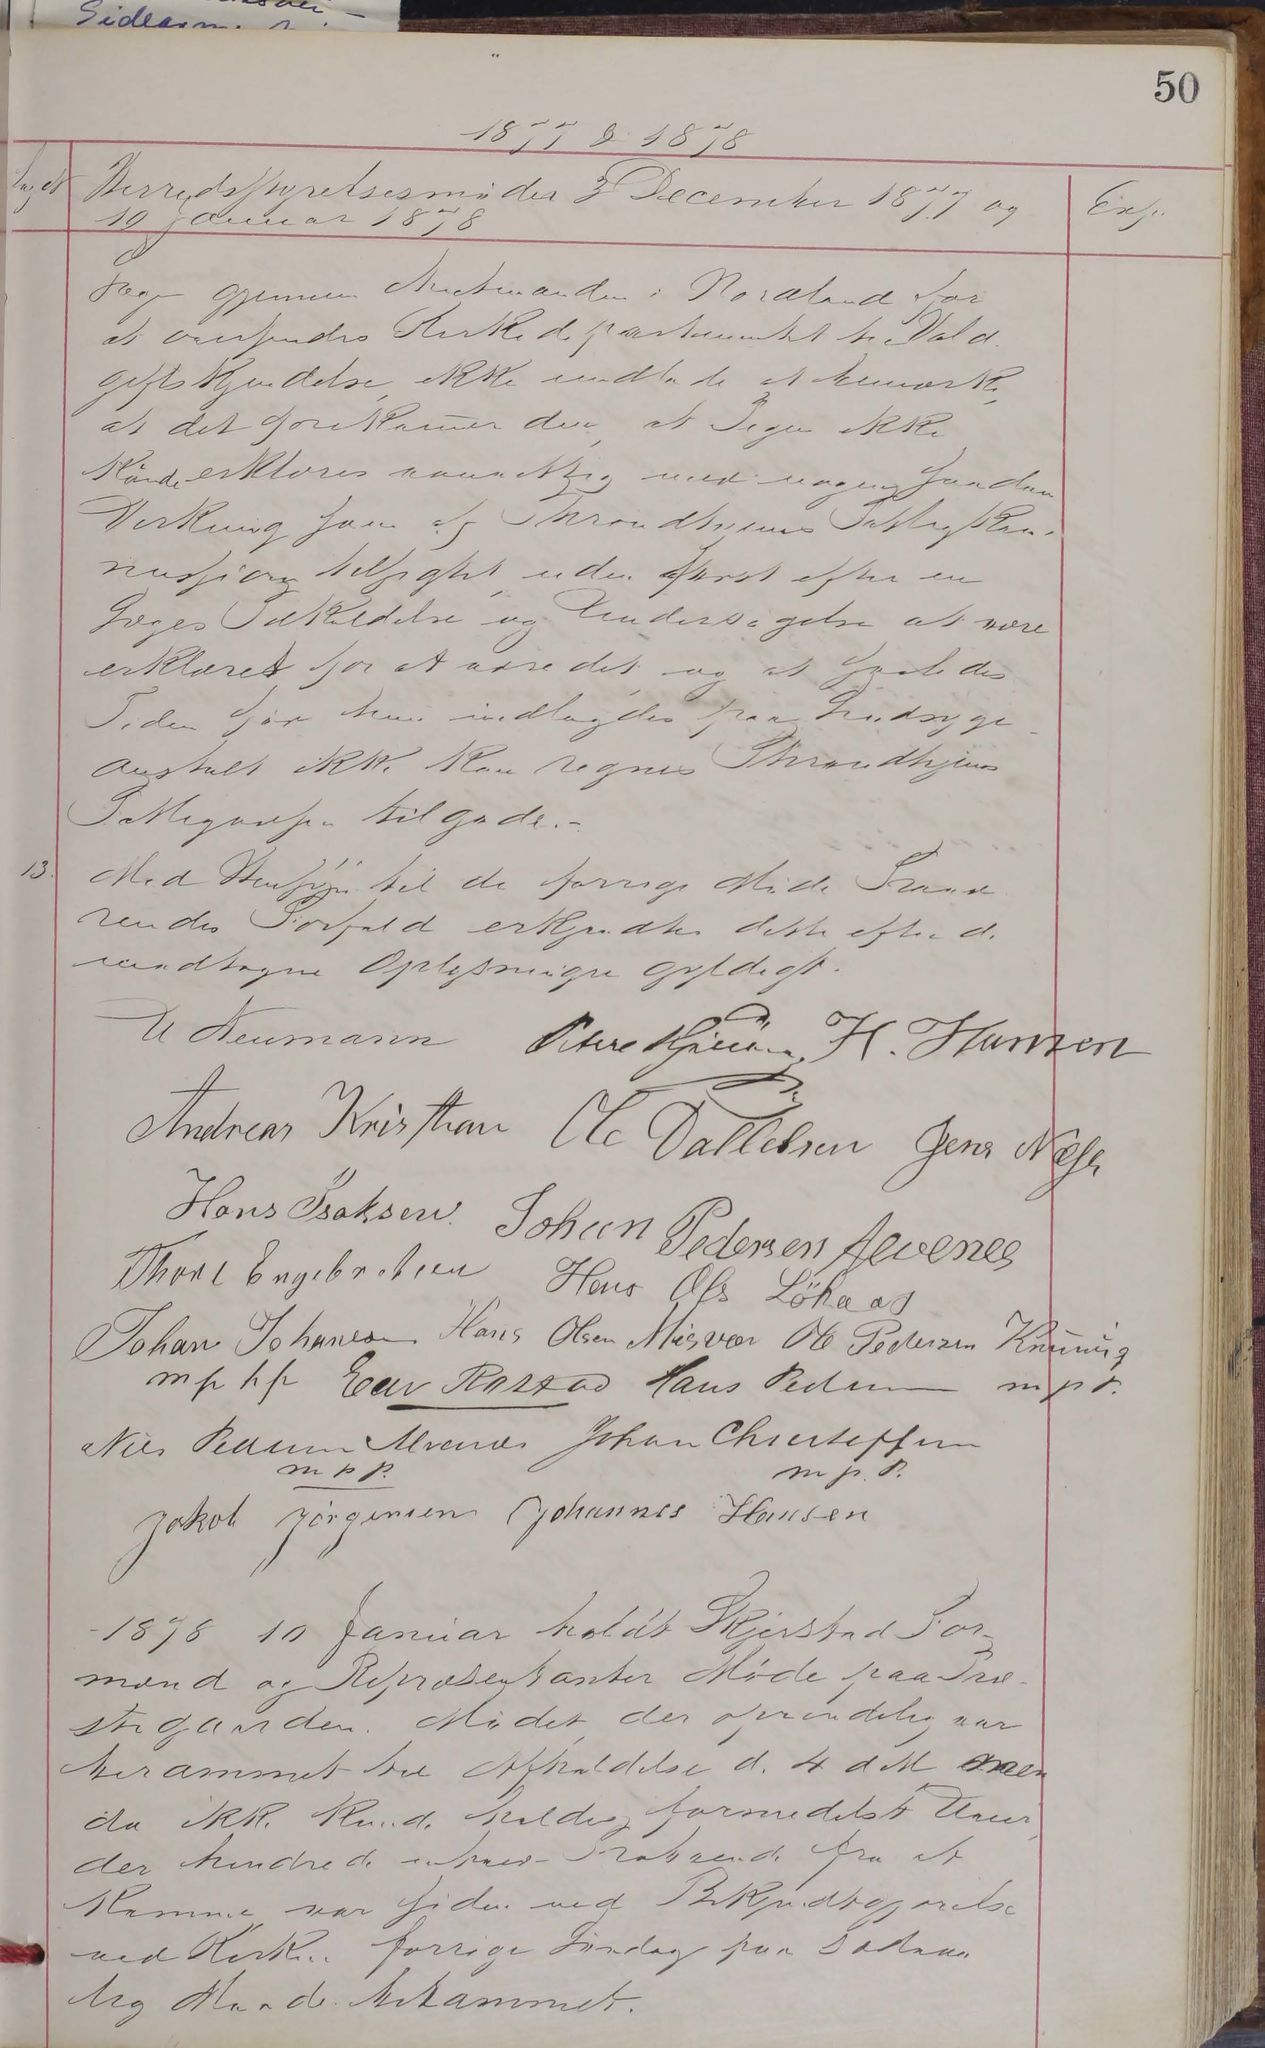 50
1877 & 1878
Herredsstyrelsesmøder 3 December 1877 og
10 Januar 1878
Exp.
gjennem Amtmanden i Nordland for
at oversendes Kirkedepartementet til Vold
giftskjendelse, ikke undlade at bemærke,
at det forekommer den, at Pigen ikke
kunde erklæres vanvittig med nogen saadan
Virkning som af Throndhjems Fattigkom-
mission tilsigtet, uden først efter en
Læges Tilkaldelse og Undersøgelse at være
erklæret for at være det og at saaledes
Tiden før hun indlagdes paa Sindsyge
anstalt ikke kan regnes Throndhjems
Fattigvæsen tilgode.-
13. Med Hensyn til de forrige Møde Fravæ
rendes Forfald erkjendtes dette efter de
modtagne Oplysninger gyldigt.
Neumann H. Hansen
Andreas Kristian Ole Jens
Hans Isaksen. Johan Pedersen Alvenes
Thore Engebretsen Hans Ols
Johan Johansen Hans Olsen Misvær Ole Pedersen
m p p Hans Pedersen m p P.
Nils Pedersen Alvenes Johan Christoffersen
m p p. m p. P.
Jakob Jørgensen Johannes Hansen
1878 10 Januar holdt Skjerstad For-
mænd og Repræsentanter Møde paa Præ-
stegaarden. Mødet, der oprindelig var
berammet til Afholdelse d. 4 d M men
da ikke kunde holdes formedelst Uveir
der hindrede fra at
komme, var siden ved Bekjendtgjørelse
ved Kirken forrige Søndag paa Sædvan
lig Maade berammet.